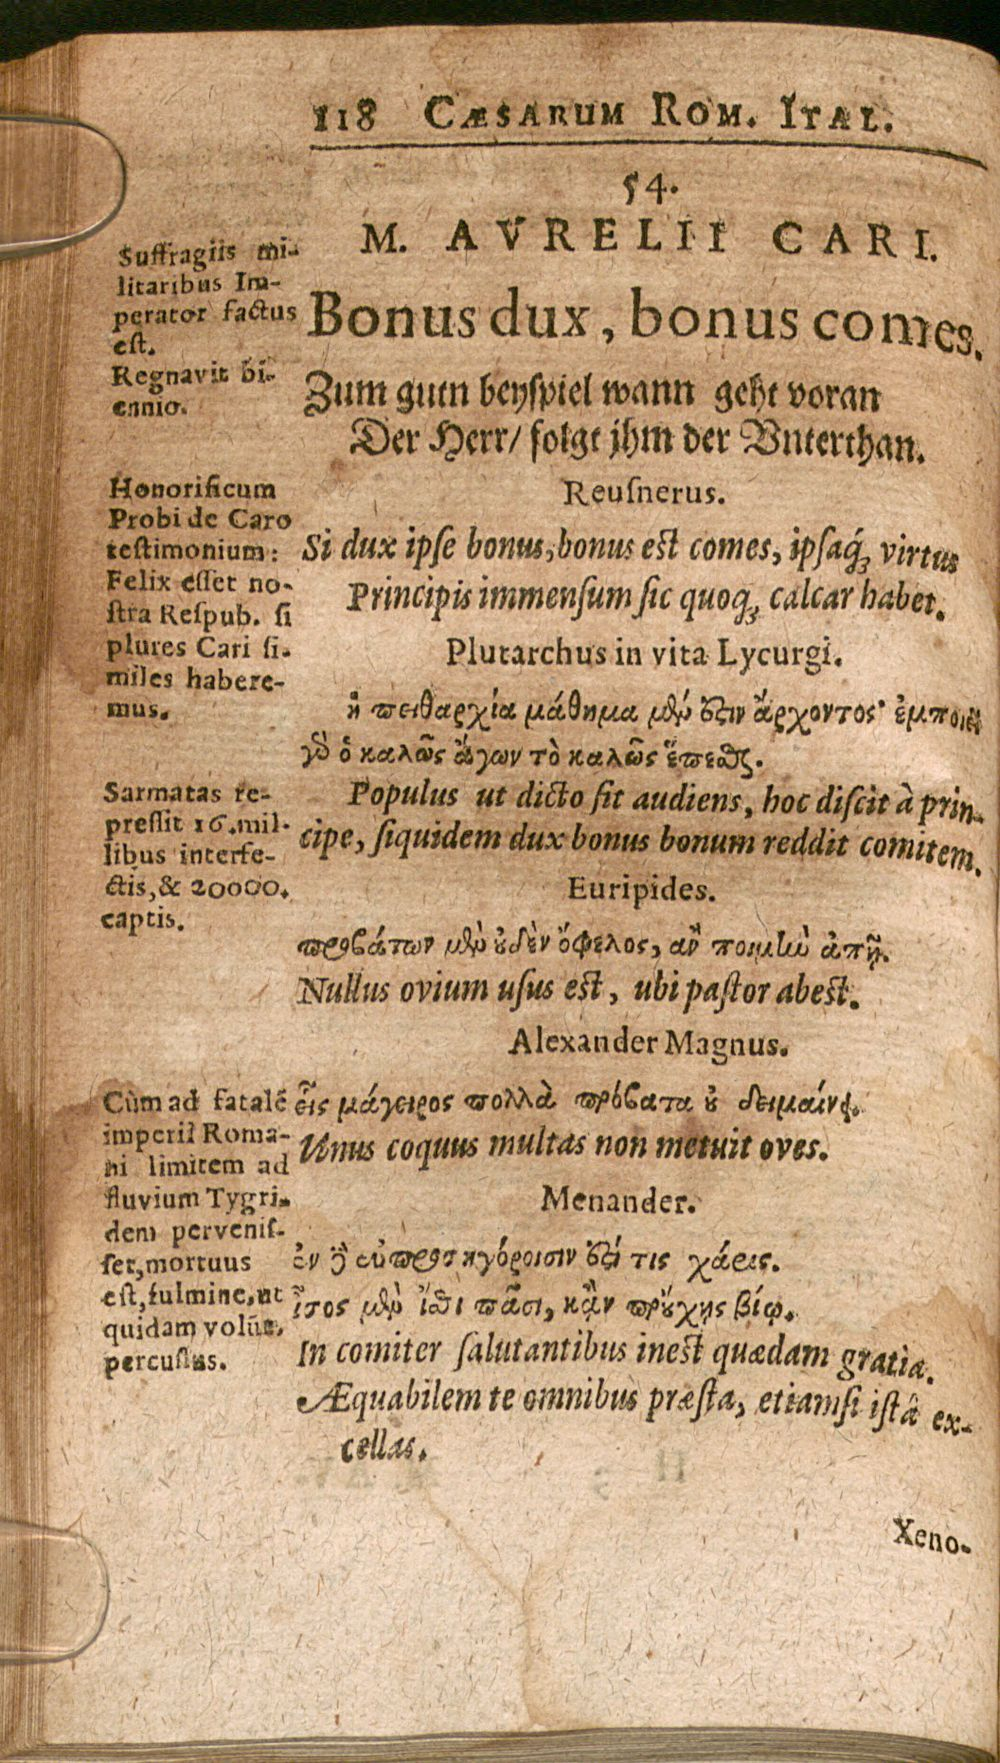 118 CÆSARUM ROM. ITAL.
54.
M. AVRELII CARI.
Bonus dux, bonus comes.
Zum gutn beyſpiel wann geht voran
Der Herr/ folgt jhm der Vnterthan.
Reuſnerus.
Si dux ipſe bonus, bonus est comes, ipſaq́; virtus
Principis immenſum ſic quoq; calcar habet.
Plutarchus in vita Lycurgi.
ἡ πειθαρχία μάθημα μὲν ἐστιν ἄρχοντος· ἐμποιεῖ
γὸ ὁ καλῶς ἄγων τὸ καλῶς ἕπεσθαι.
Populus ut dicto ſit audiens, hoc diſcit à prin-
cipe, ſiquidem dux bonus bonum reddit comitem.
Euripides.
προβάτων μὲν ȣδὲν ὄφελος, ἂν ποιμὴν ἀπῇ.
Nullus ovium uſus est, ubi paſtor abest.
Alexander Magnus.
εἷς μάγειρος πολλὰ πρόβατα ȣ δειμαίνει.
Unus coquus multas non metuit oves.
Menander.
ἐν δ' εὐπροσηγόροισιν ἐστί τις χάρις.
ἴσος μὲν ἴσθι πᾶσι, κἂν προὔχῃς βίῳ.
In comiter ſalutantibus inest quædam gratia.
Æquabilem te omnibus præſta, etiamſi iſtâ ex-
cellas.
Xeno-
Suffragiis mi-
litaribus Im-
perator factus
eſt.
Regnavit bi-
ennio.
Honorificum
Probi de Caro
teſtimonium:
Felix eſſet no-
ſtra Reſpub. ſi
plures Cari ſi-
miles habere-
mus.
Sarmatas re-
preſſit 16. mil-
libus interfe-
ctis, & 20000.
captis.
Cùm ad fatalē
imperii Roma-
ni limitem ad
fluvium Tygri-
dem perveniſ-
ſet, mortuus
eſt, fulmine, ut
quidam volūt,
percuſſus.